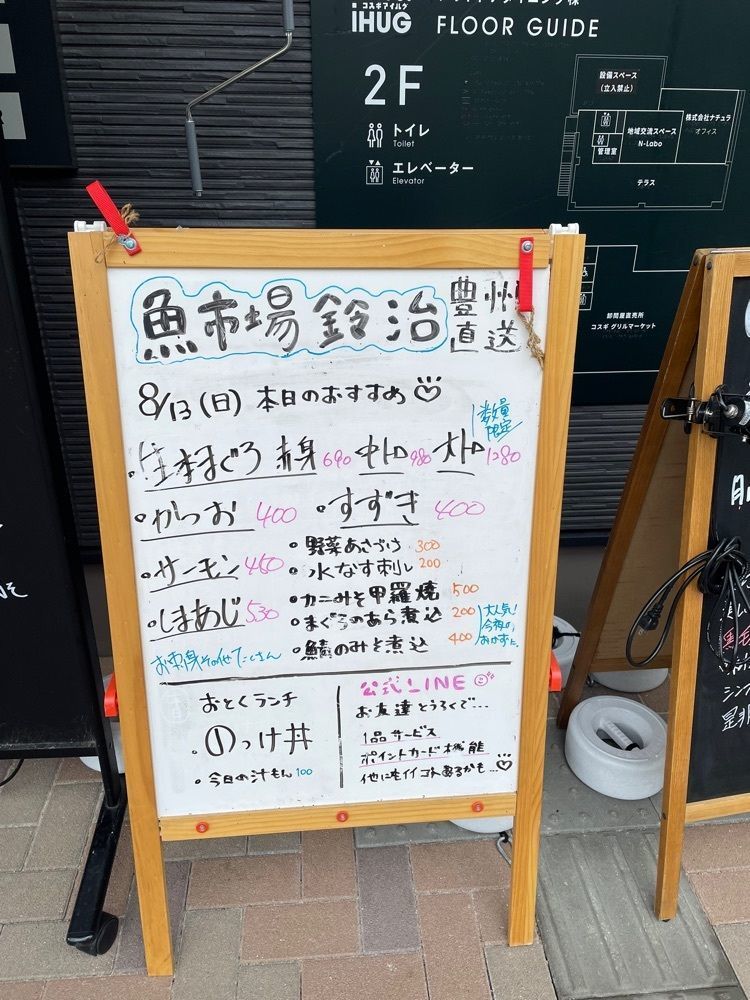 コスギアイハグ
IHUG
FLOOR GUIDE
2F
トイレ
Toilet
エレベーター
Elevator
設備スペース
(立入禁止)
管理室
地域交流スペース
N-Labo
株式会社ナチュラ
オフィス
テラス
卸問屋直売所
コスギ グリルマーケット
魚市場 鈴治
豊州
直送
8/13(日) 本日のおすすめ
数量
限定
・生本まぐろ 赤身 690 中トロ 980 大トロ 1280
・かつお 400 ・すずき 400
・サーモン 450
・しまあじ 530
・野菜あさづけ 300
・水なす刺し 200
・カニみそ甲羅焼 500
・まぐろのあら煮込 200
・鯖のみそ煮込 400
大人気!
今夜の
おかずに
お刺身その他たくさん
おとくランチ
・のっけ丼
・今日の汁もん 100
公式LINE
お友達とうろくで...
1品サービス
ポイントカード機能
他にもイイコトあるかも...